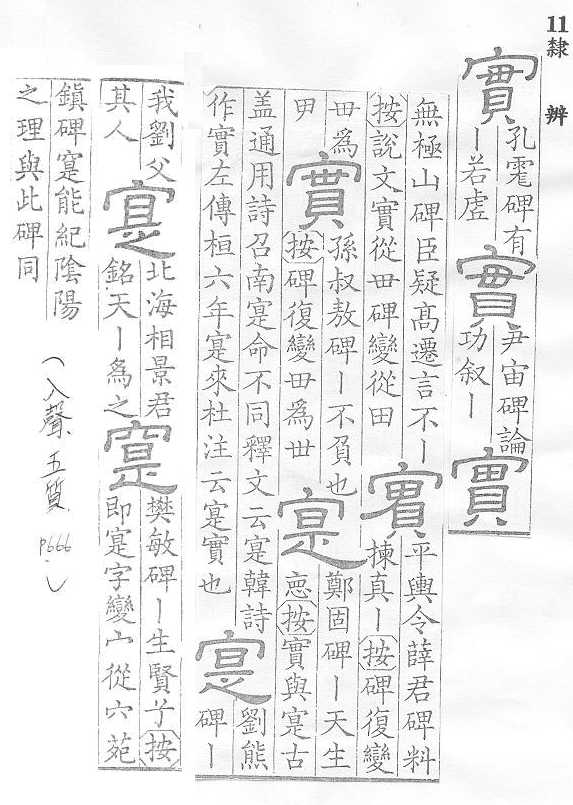 11隸辨
實
孔碑有
丨若虛
實
尹宙碑論
功叙丨
實
無極山碑臣疑高遷言不丨
按說文實從毌碑變從田
實
平輿令薛君碑料
揀真丨按碑復變
毌為
甲
實
孫叔敖碑丨不負也
按碑復變毌為丗
寔
鄭固碑丨天生
悳按實與寔古
盖通用詩召南寔命不同釋文云寔韓詩
作實左傳桓六年寔來杜注云寔實也
寔
劉熊
碑丨
我劉父
其人
寔
北海相景君
銘天丨為之
寔
樊敏碑丨生賢子按
即寔字變宀從穴苑
鎮碑寔能紀陰陽
之理與此碑同
（入聲 五質 P666）